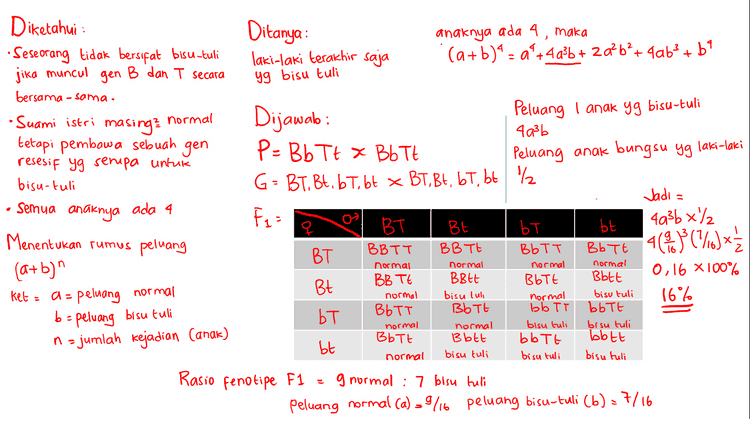 Diketahui:
• Seseorang tidak bersifat bisu-tuli
jika muncul gen B dan T secara
bersama-sama.
• Suami istri masing2 normal
tetapi pembawa sebuah gen
resesif yg serupa untuk
bisu-tuli
• Semua anaknya ada 4
Menentukan rumus peluang
(a+b)ⁿ
ket = a = peluang normal
b = peluang bisu tuli
n = jumlah kejadian (anak)
Ditanya:
laki-laki terakhir saja
yg bisu tuli
anaknya ada 4, maka
(a+b)⁴ = a⁴ + 4a³b + 2a²b² + 4ab³ + b⁴
Dijawab:
P = BbTt × BbTt
G = BT, Bt, bT, bt × BT, Bt, bT, bt
Peluang 1 anak yg bisu-tuli
4a³b
Peluang anak bungsu yg laki-laki
1/2
F1 =
♀ ♂ BT Bt bT bt
BT BBTT BBTt BbTT BbTt
normal normal normal normal
Bt BBTt BBtt BbTt Bbtt
normal bisu tuli normal bisu tuli
bT BbTT BbTt bbTT bbTt
normal normal bisu tuli bisu tuli
bt BbTt Bbtt bbTt bbtt
normal bisu tuli bisu tuli bisu tuli
Jadi =
4a³b × 1/2
4(9/16)³(7/16) × 1/2
0,16 × 100%
16%
Rasio fenotipe F1 = 9 normal : 7 bisu tuli
peluang normal (a) = 9/16 peluang bisu-tuli (b) = 7/16